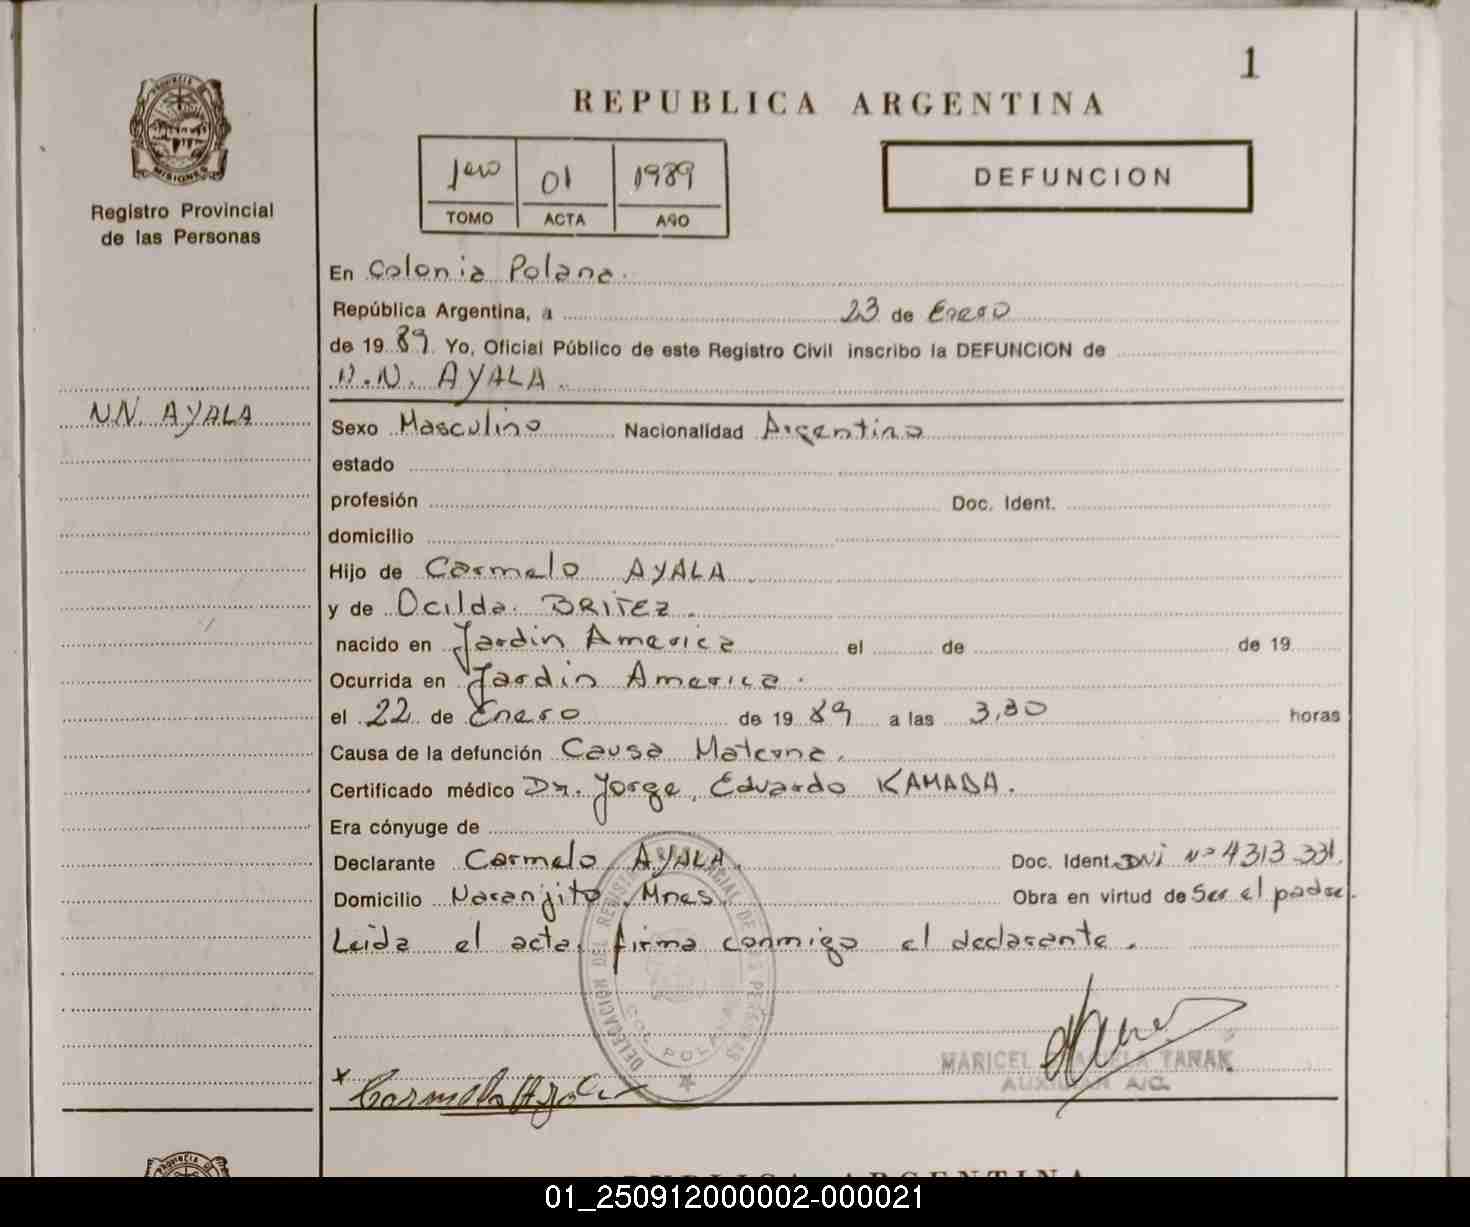 1
PROVINCIA DE
MISIONES
Registro Provincial
de las Personas
NN. AYALA
REPUBLICA ARGENTINA
1ero 01 1989
TOMO ACTA AÑO
DEFUNCION
En Colonia Polana.
República Argentina, a 23 de Enero
de 19 89. Yo, Oficial Público de este Registro Civil inscribo la DEFUNCION de
N.N. AYALA.
Sexo Masculino Nacionalidad Argentino
estado
profesión Doc. Ident.
domicilio
Hijo de Carmelo AYALA.
y de Ocilda BRITEZ.
nacido en Jardin America el de de 19
Ocurrida en Jardin America.
el 22 de Enero de 19 89 a las 3,30 horas
Causa de la defunción Causa Materna.
Certificado médico Dr. Jorge Eduardo KAMADA.
Era cónyuge de
Declarante Carmelo AYALA. Doc. Ident. DNi Nº 4313 331.
Domicilio Naranjito, Mnes. Obra en virtud de Ser el padre.
Leida el acta, firma conmigo el declarante.
DELEGACION DE REGISTRO PROVINCIAL DE LAS PERSONAS
COL. POLANA
MARICEL TANAK
AUXILIAR A/C.
x Carmelo Ayala
REPUBLICA ARGENTINA
01_250912000002-000021